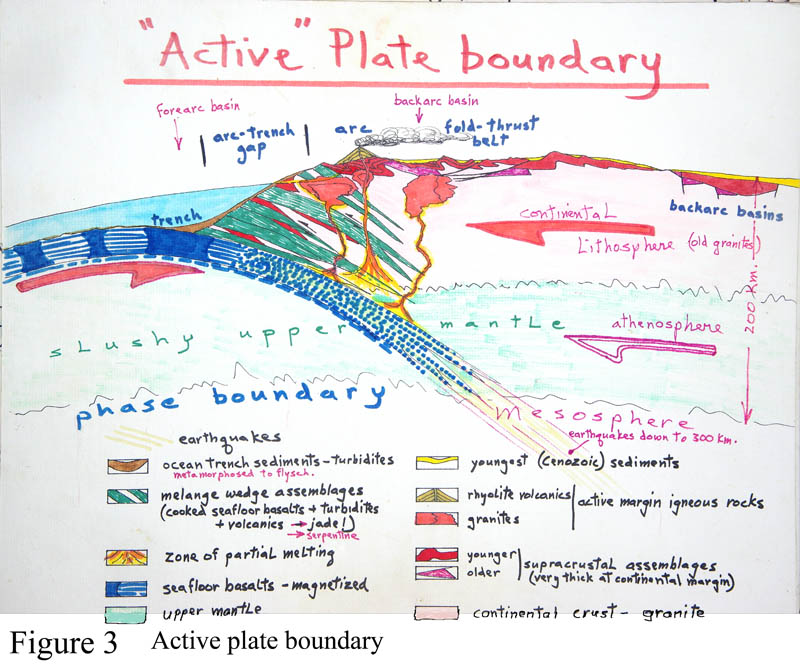 "Active" Plate boundary
forearc basin
backarc basin
arc-trench
gap
arc
fold-thrust
belt
trench
backarc basins
continental
Lithosphere (old granites)
200 Km.
slushy upper mantle
athenosphere
phase boundary
mesosphere
earthquakes down to 300 km.
earthquakes
ocean trench sediments - turbidites
metamorphosed to flysch.
melange wedge assemblages
(cooked seafloor basalts + turbidites
+ volcanics → jade!)
→ serpentine
zone of partial melting
seafloor basalts - magnetized
upper mantle
youngest (Cenozoic) sediments
rhyolite volcanics
granites
active margin igneous rocks
younger
older
supracrustal assemblages
(very thick at continental margin)
continental crust - granite
Figure 3 Active plate boundary